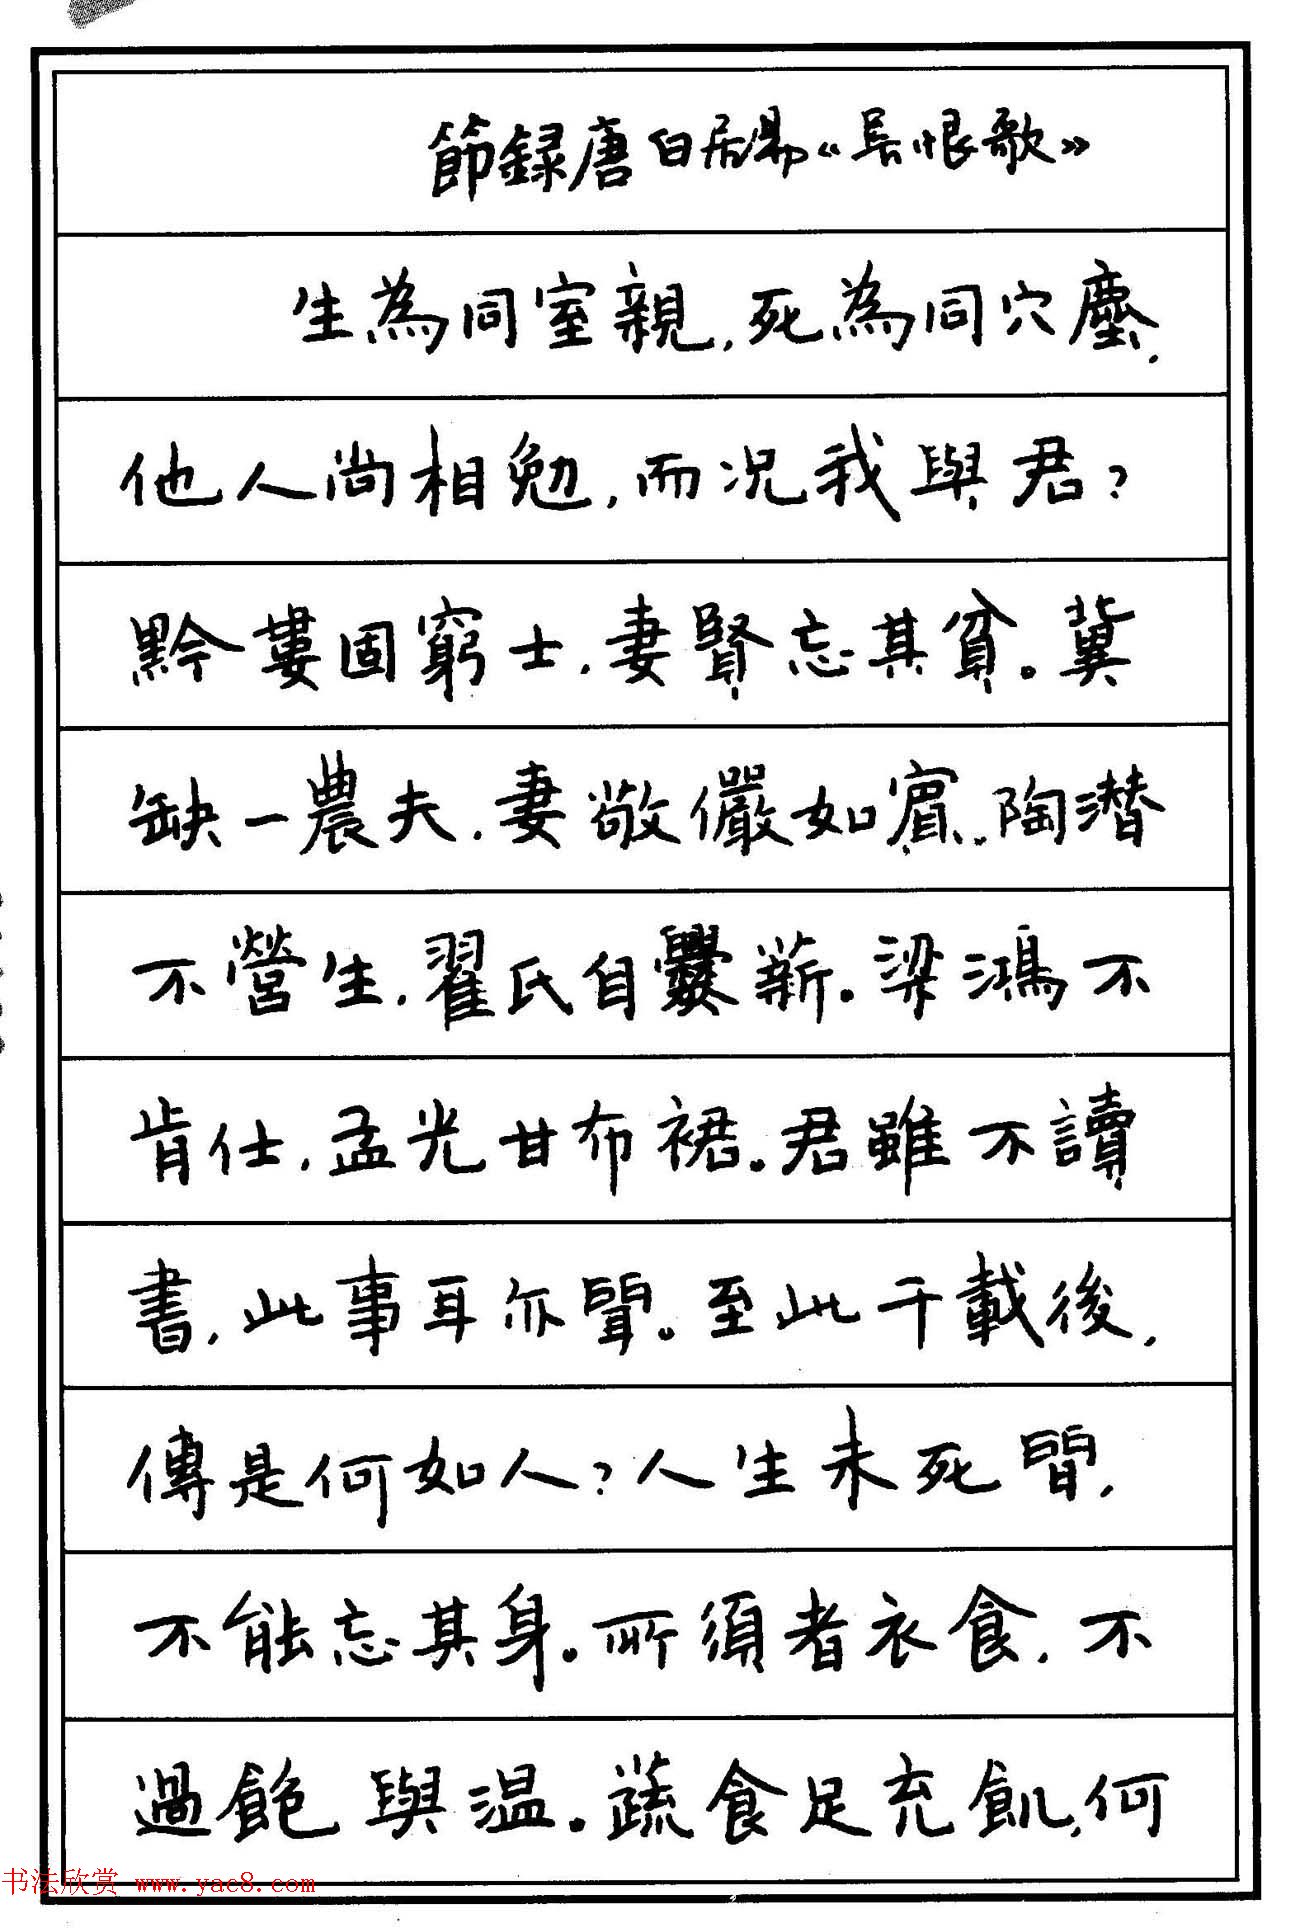 節録唐白居易《長恨歌》
生為同室親，死為同穴塵，
他人尚相勉，而况我與君？
黔婁固窮士，妻賢忘其貧。冀
缺一農夫，妻敬儼如賓。陶潜
不營生，翟氏自爨薪。梁鴻不
肯仕，孟光甘布裙。君雖不讀
書，此事耳亦聞。至此千載後，
傳是何如人？人生未死間，
不能忘其身。所須者衣食，不
過飽與温。蔬食足充飢，何
书法欣赏 www.yac8.com